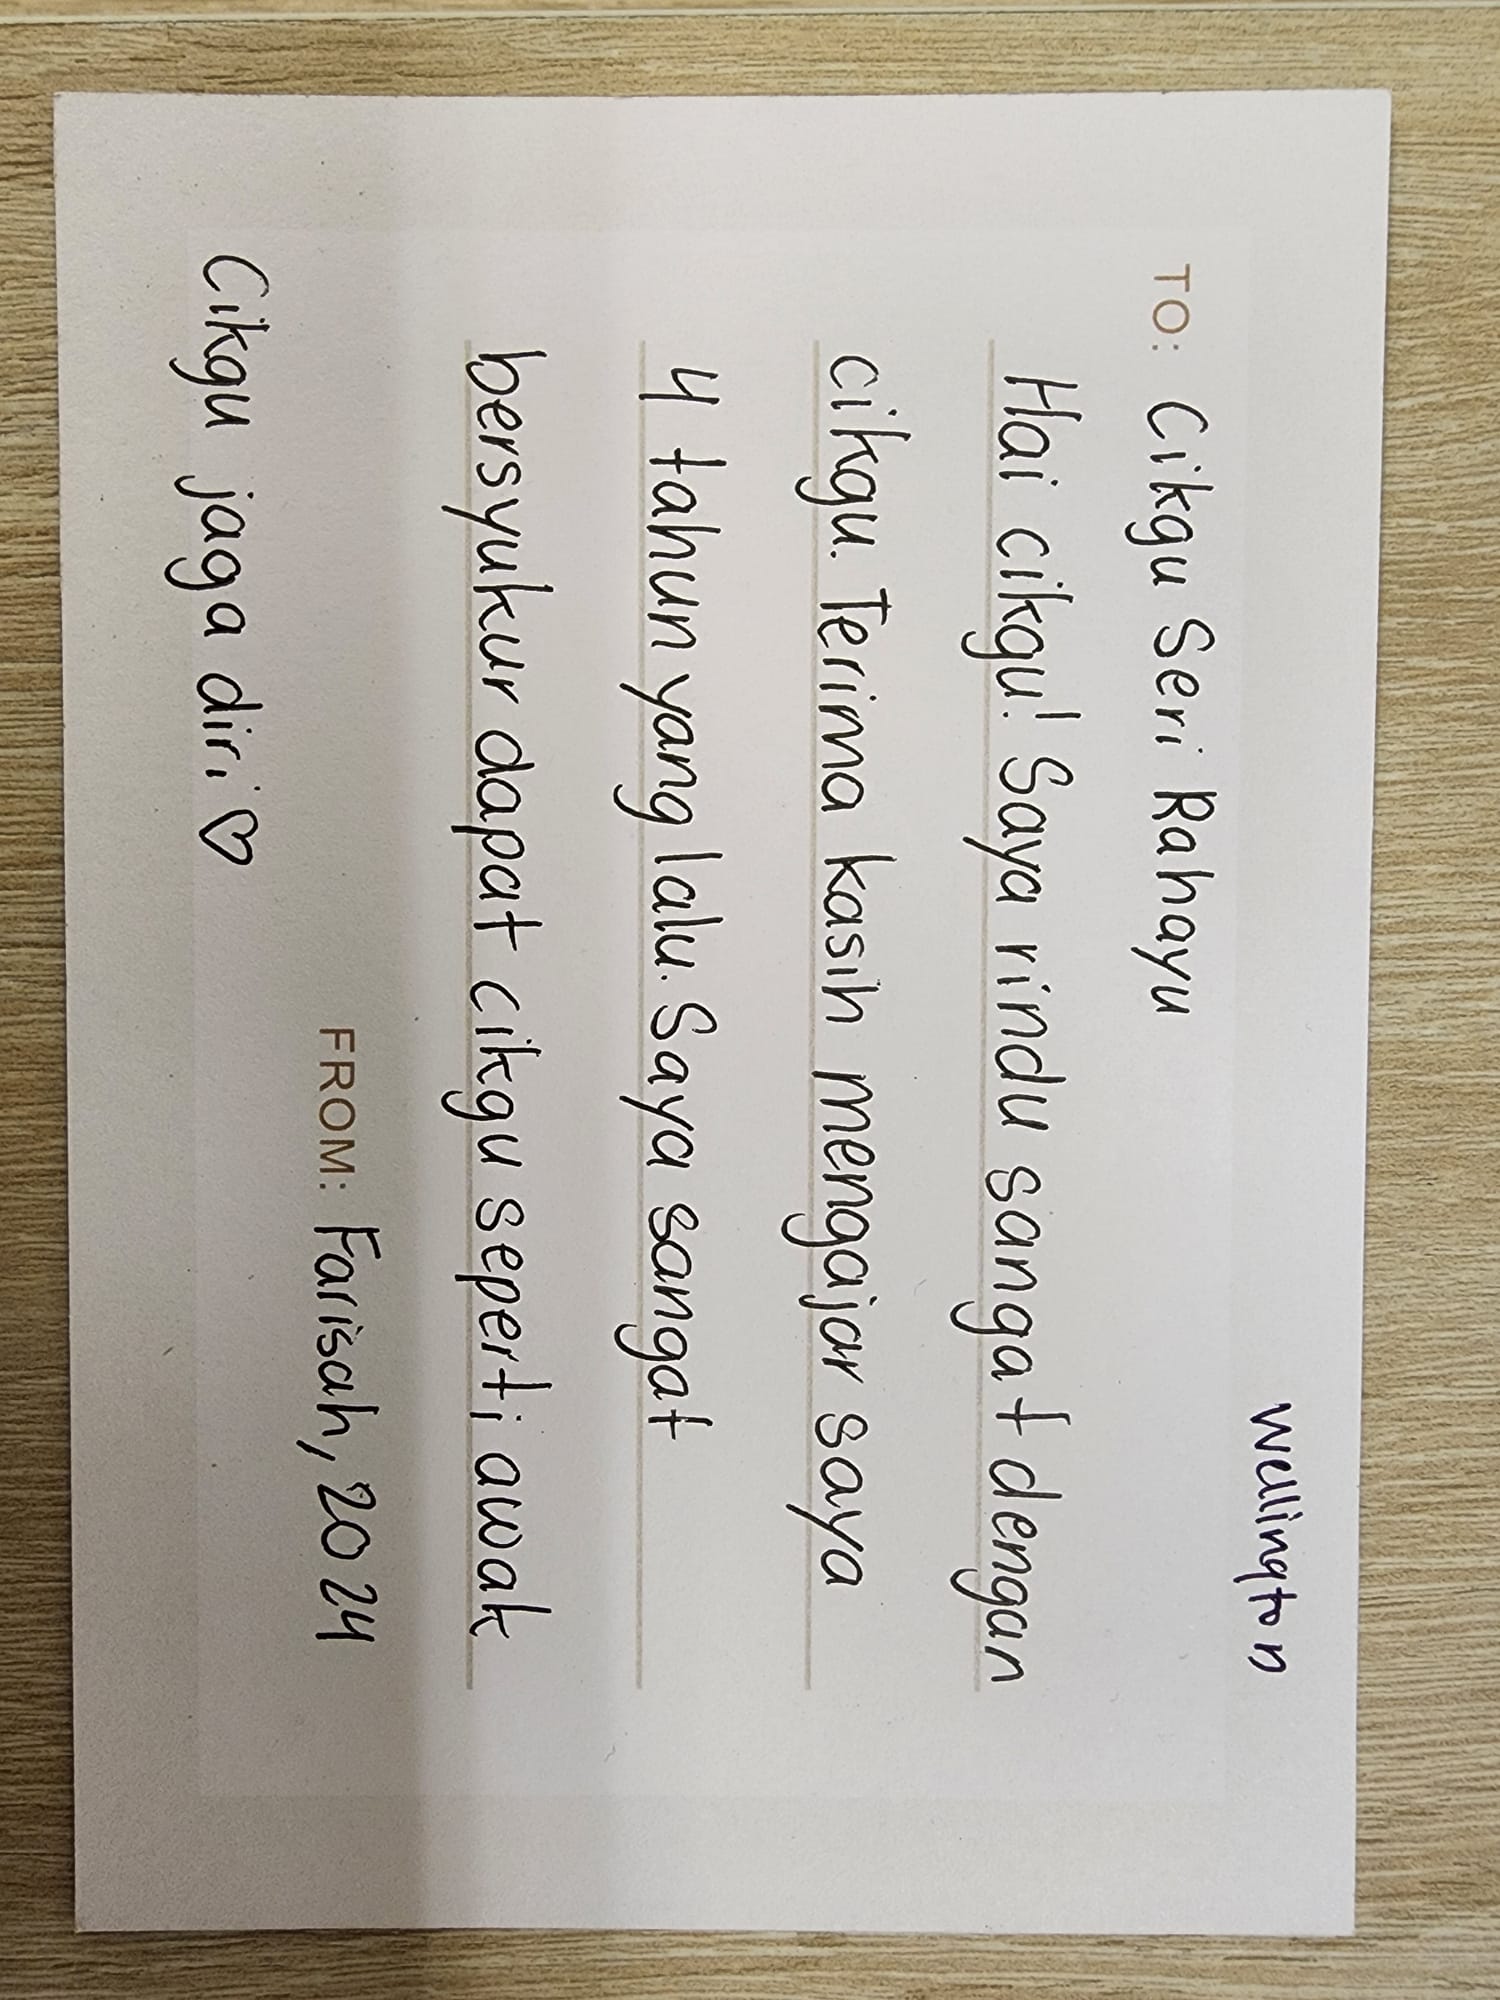 Wellington
TO: Cikgu Seri Rahayu
Hai cikgu! Saya rindu sangat dengan
cikgu. Terima kasih mengajar saya
4 tahun yang lalu. Saya sangat
bersyukur dapat cikgu seperti awak
FROM: Farisah, 2024
Cikgu jaga diri ♡